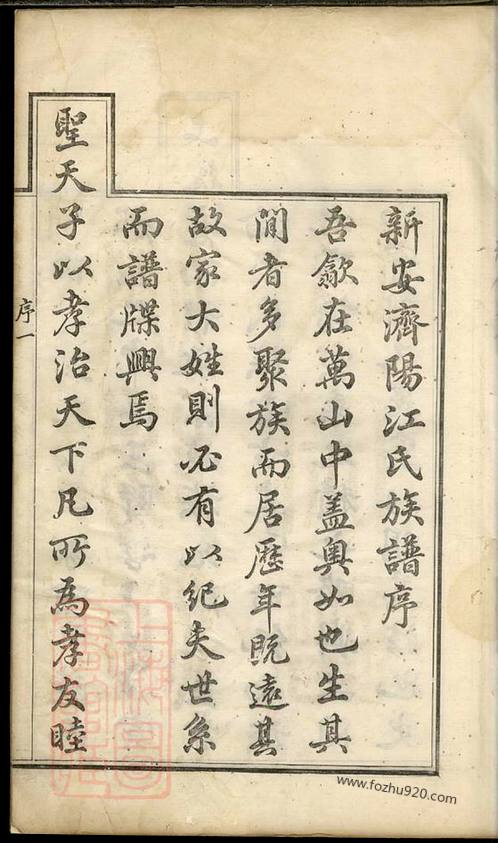 新安濟陽江氏族譜序
吾歙在萬山中蓋奧如也生其
間者多聚族而居歷年既遠其
故家大姓則必有以紀夫世系
而譜牒興焉
聖天子以孝治天下凡所為孝友睦
序一
www.fozhu920.com